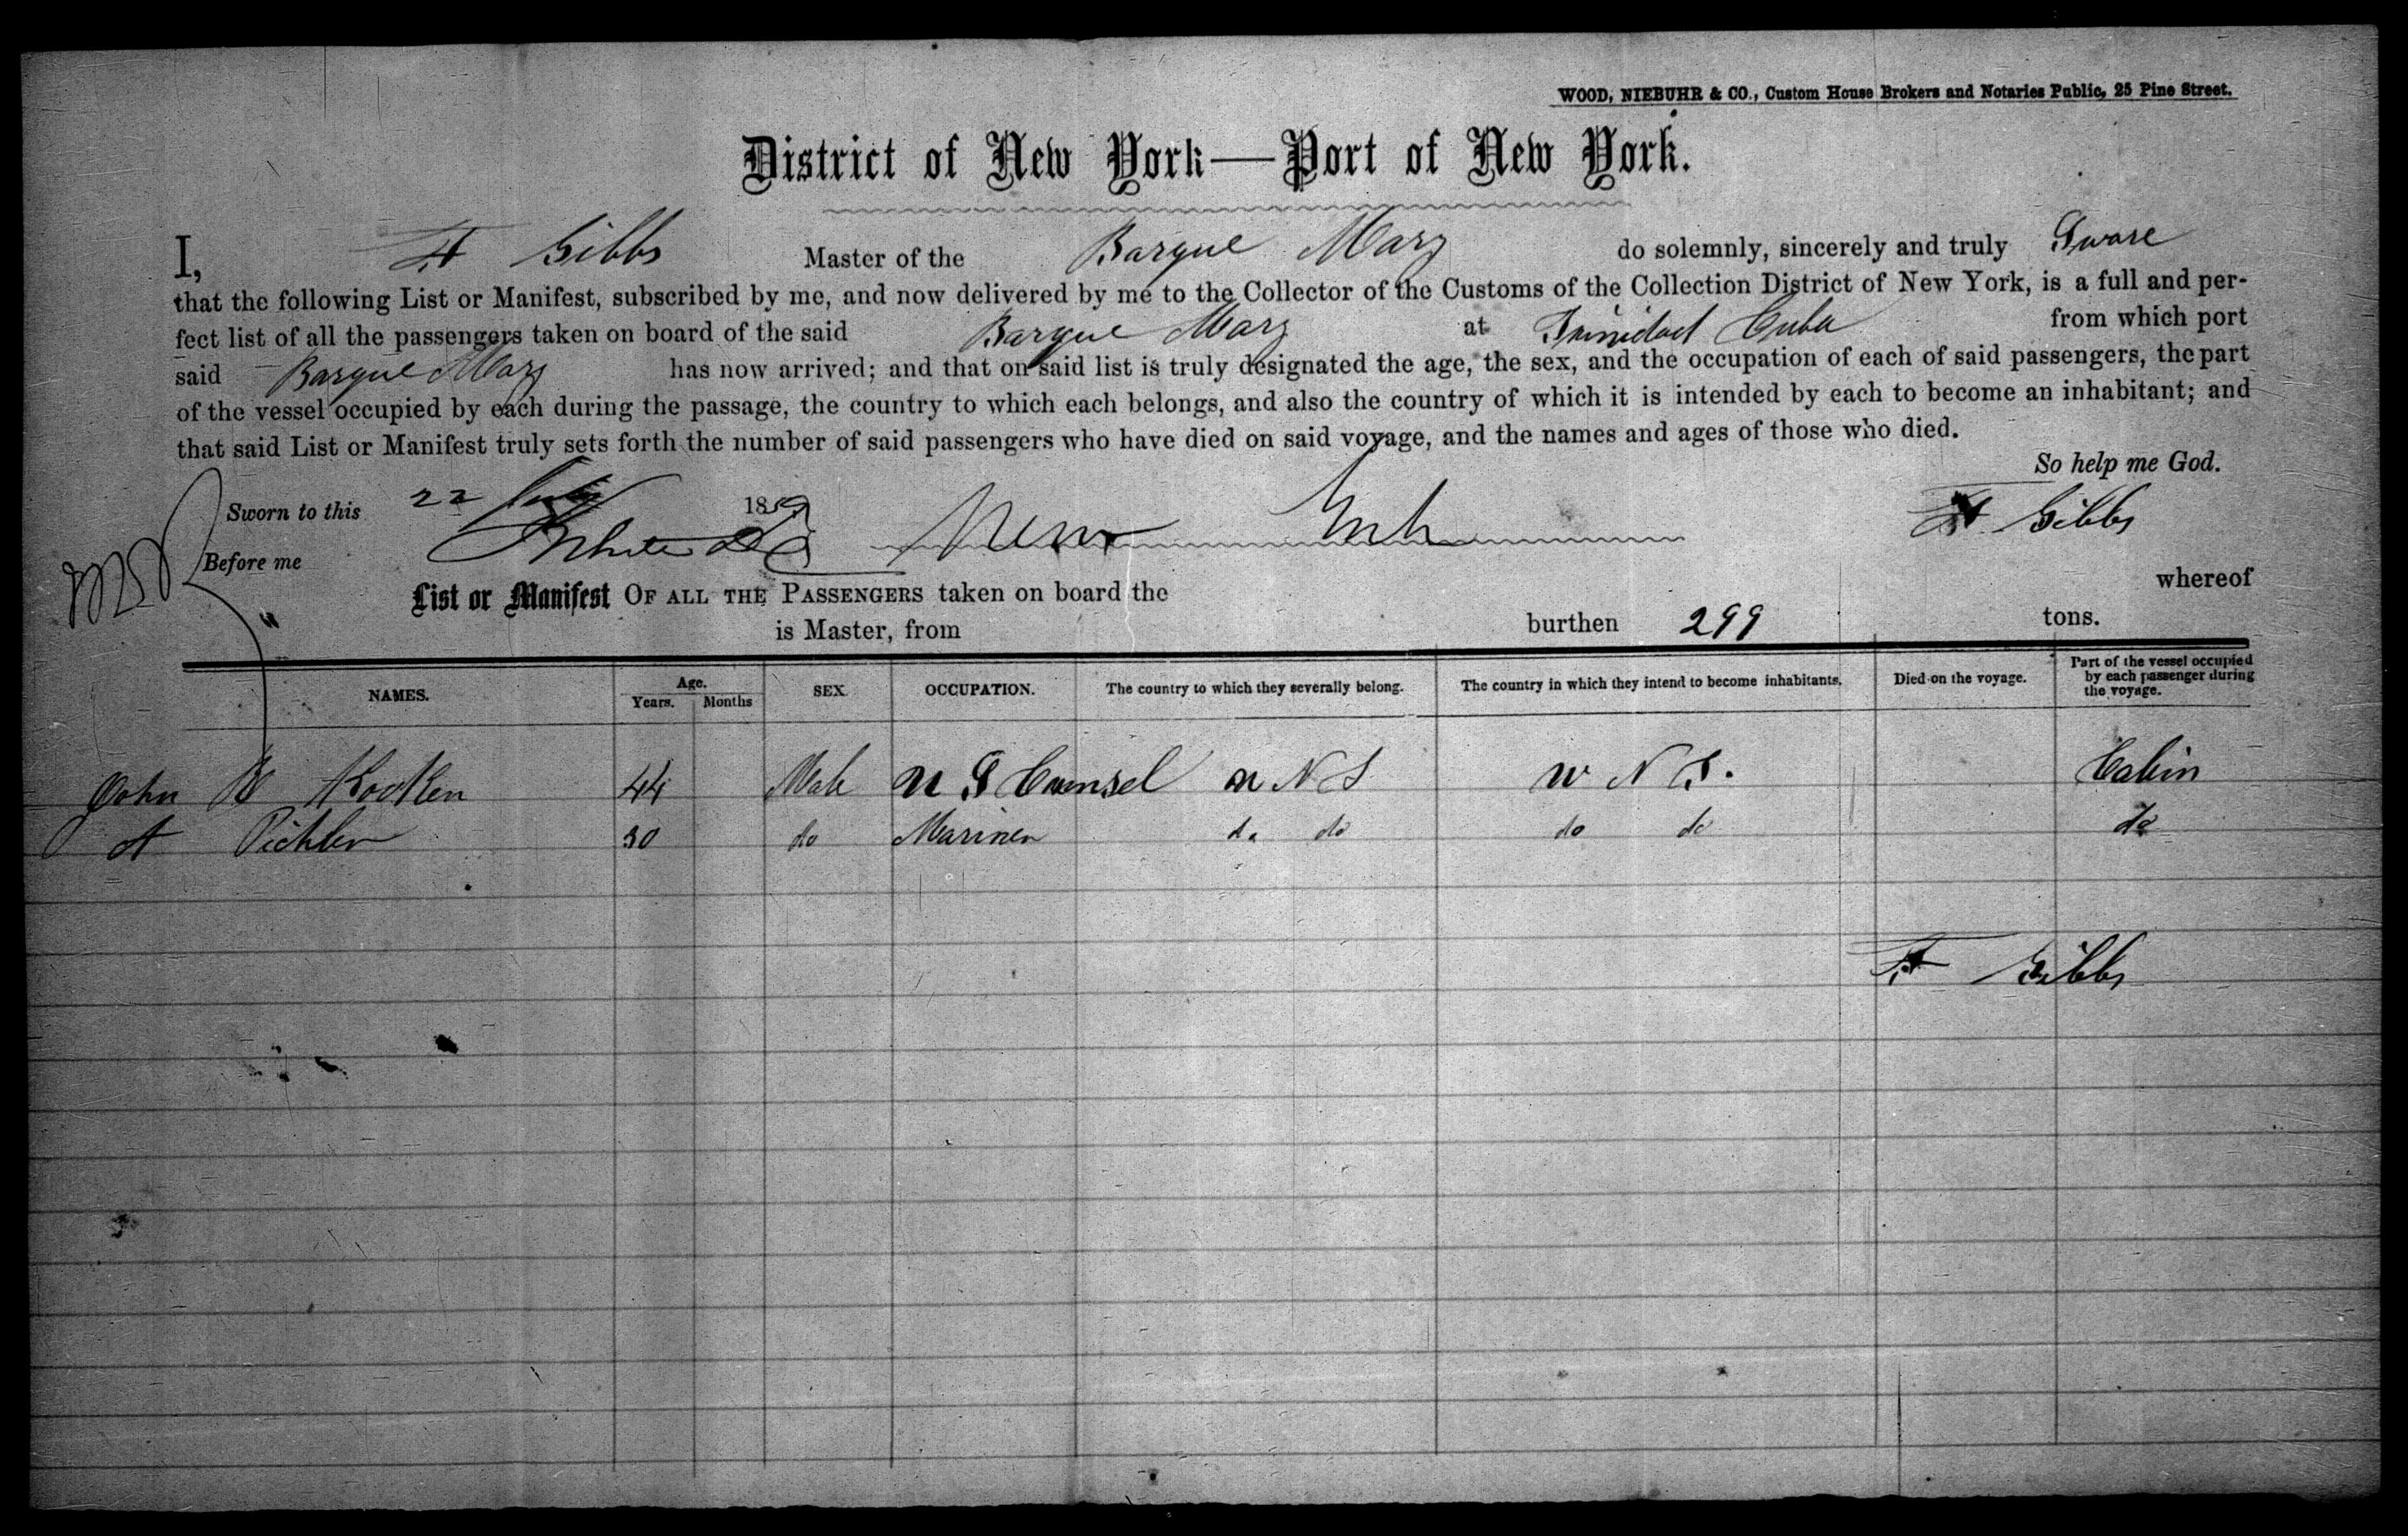 WOOD, NIEBUHR & CO., Custom House Brokers and Notaries Public, 25 Pine Street.
District of New York—Port of New York.
I, Gibbs Master of the Barque Mary do solemnly, sincerely and truly Sware
that the following List or Manifest, subscribed by me, and now delivered by me to the Collector of the Customs of the Collection District of New York, is a full and per-
fect list of all the passengers taken on board of the said Barque Mary at Trinidad Cuba from which port
said Barque Mary has now arrived; and that on said list is truly designated the age, the sex, and the occupation of each of said passengers, the part
of the vessel occupied by each during the passage, the country to which each belongs, and also the country of which it is intended by each to become an inhabitant; and
that said List or Manifest truly sets forth the number of said passengers who have died on said voyage, and the names and ages of those who died.
So help me God.
Sworn to this 22 July 1859 Gibbs
Before me
List or Manifest OF ALL THE PASSENGERS taken on board the whereof
is Master, from burthen 299 tons.
NAMES. Age. Years. Months SEX. OCCUPATION. The country to which they severally belong. The country in which they intend to become inhabitants. Died on the voyage. Part of the vessel occupied by each passenger during the voyage.
John 44 Male U S Counsel Cabin
A Pichler 30 do Mariner do do do do do
Gibbs